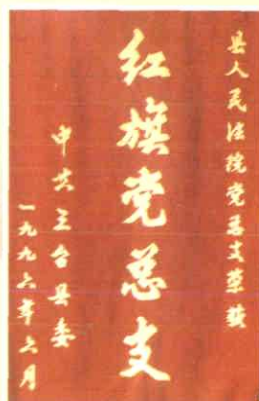 县人民法院党总支荣获
红旗党总支
中共三台县委
一九九六年六月